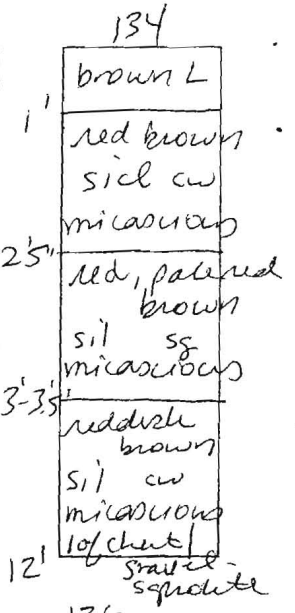 134
brown L
1'
red brown
sicl cw
micascious
2'5"
red, pale red
brown
sil sg
micascious
3'-3.5'
reddish
brown
sil cw
micascious
12'
gravel-